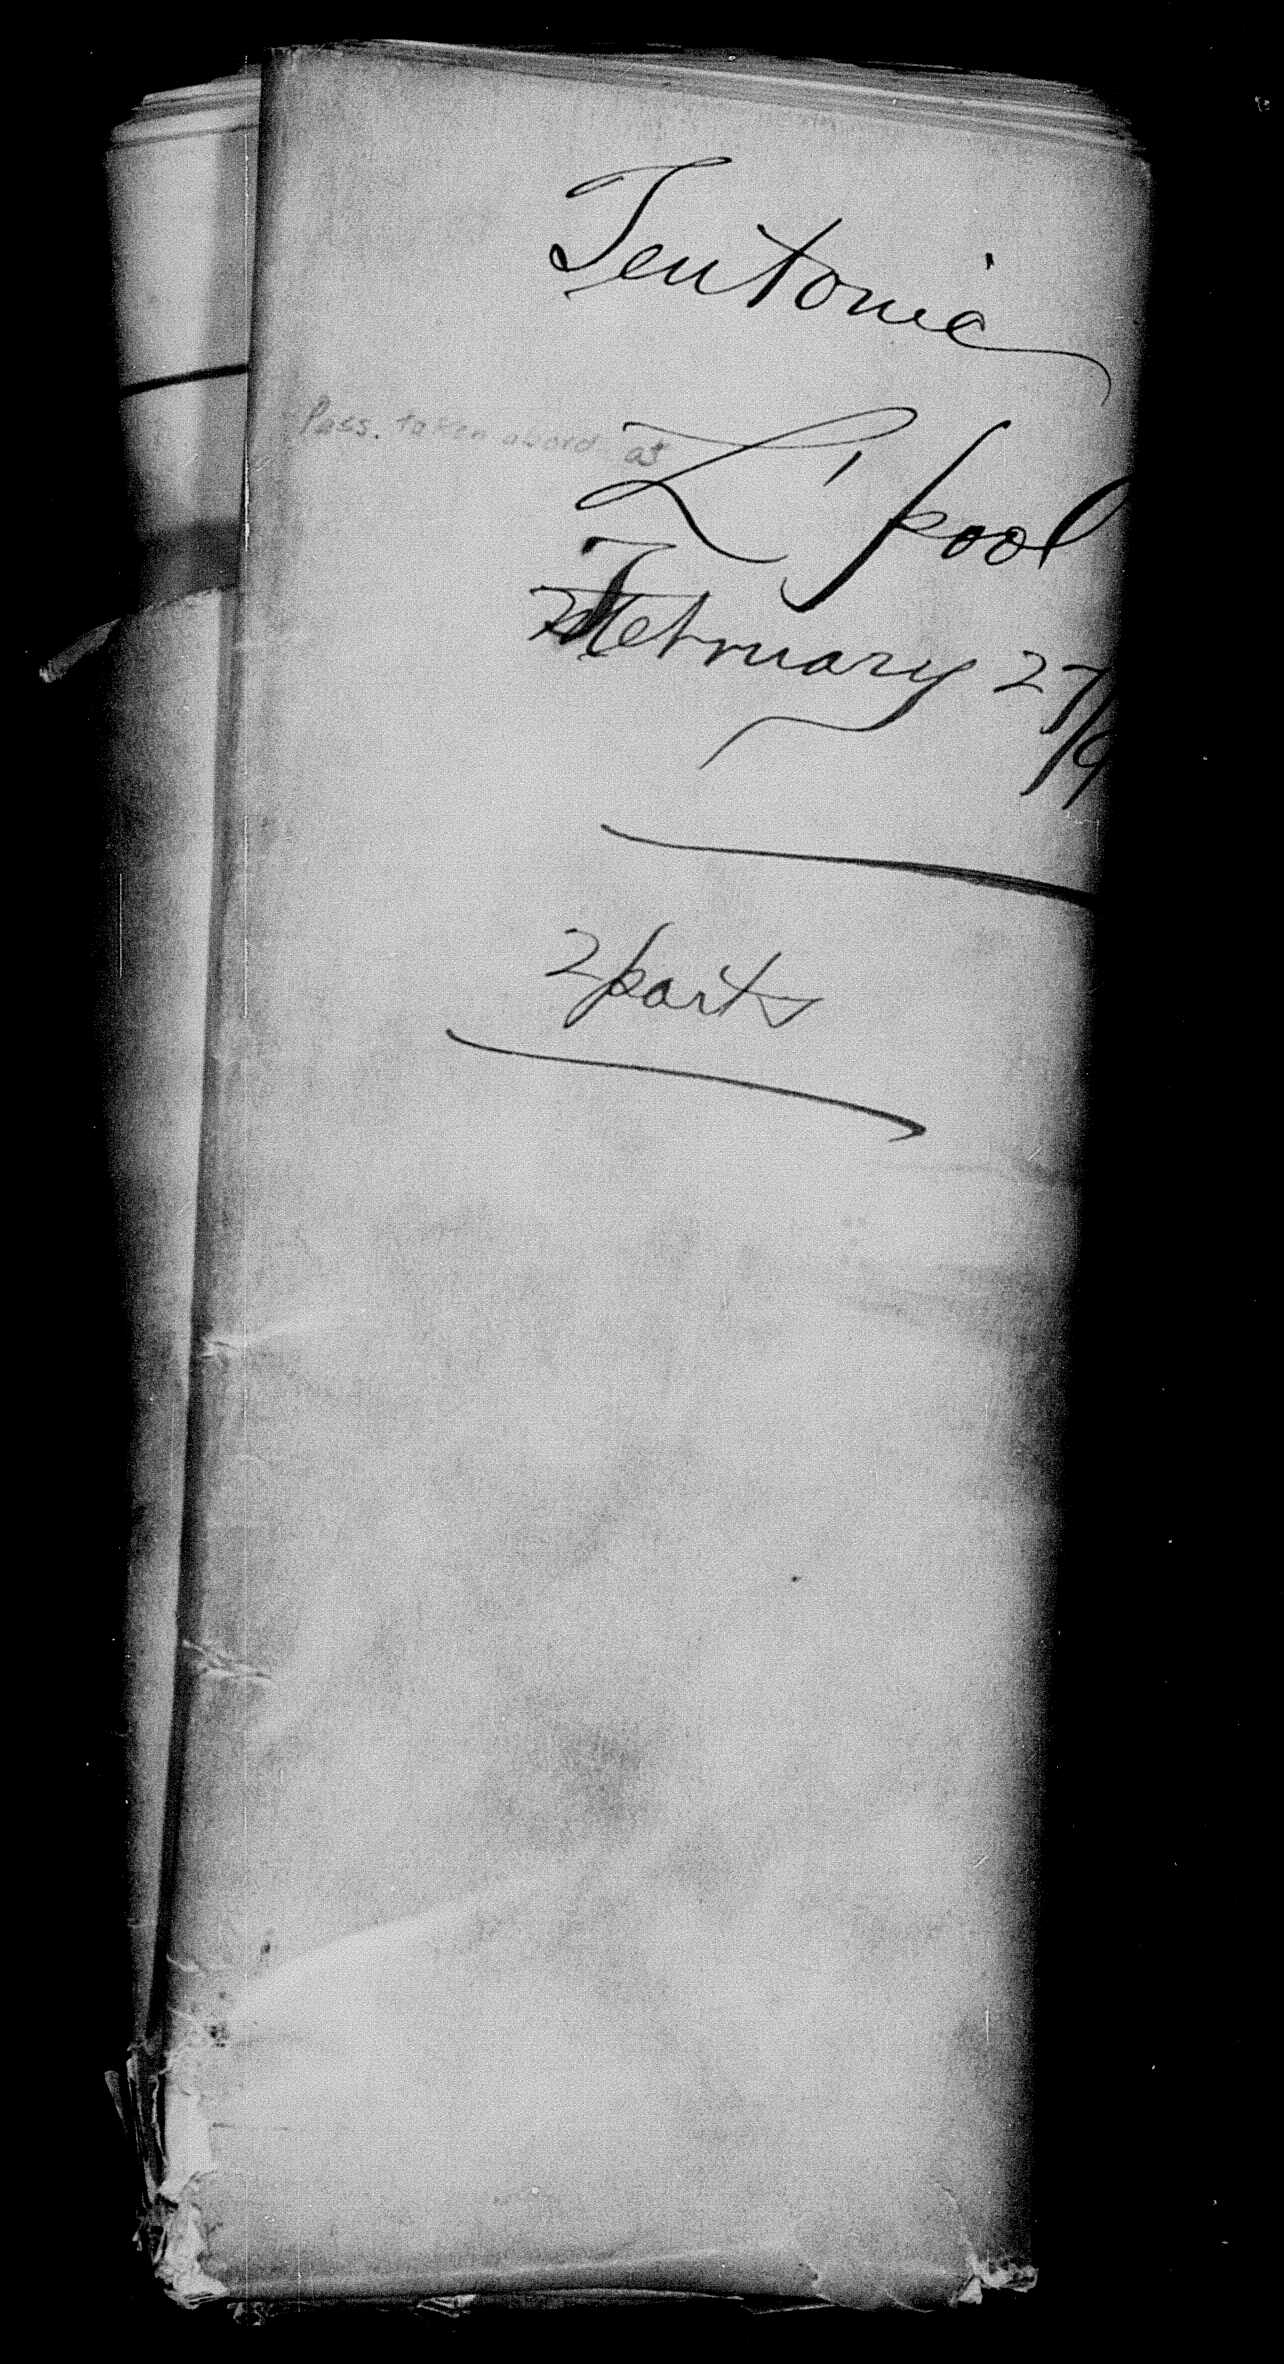 Teutonic
Pass. taken abord at
L'pool
February 27/9
2 parts